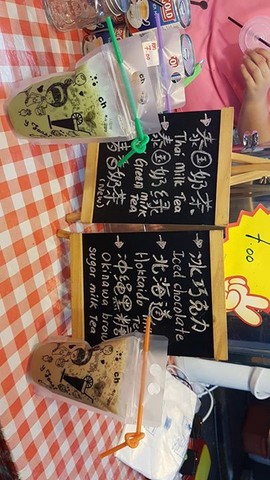 泰国奶茶
Thai Milk Tea
泰国
Green milk
Tea
奶茶
(New)
冰巧克力
Iced chocolate
北海道
Hokkaid
冲绳黑
Okinawa brow
sugar milk Tea
ch
ch